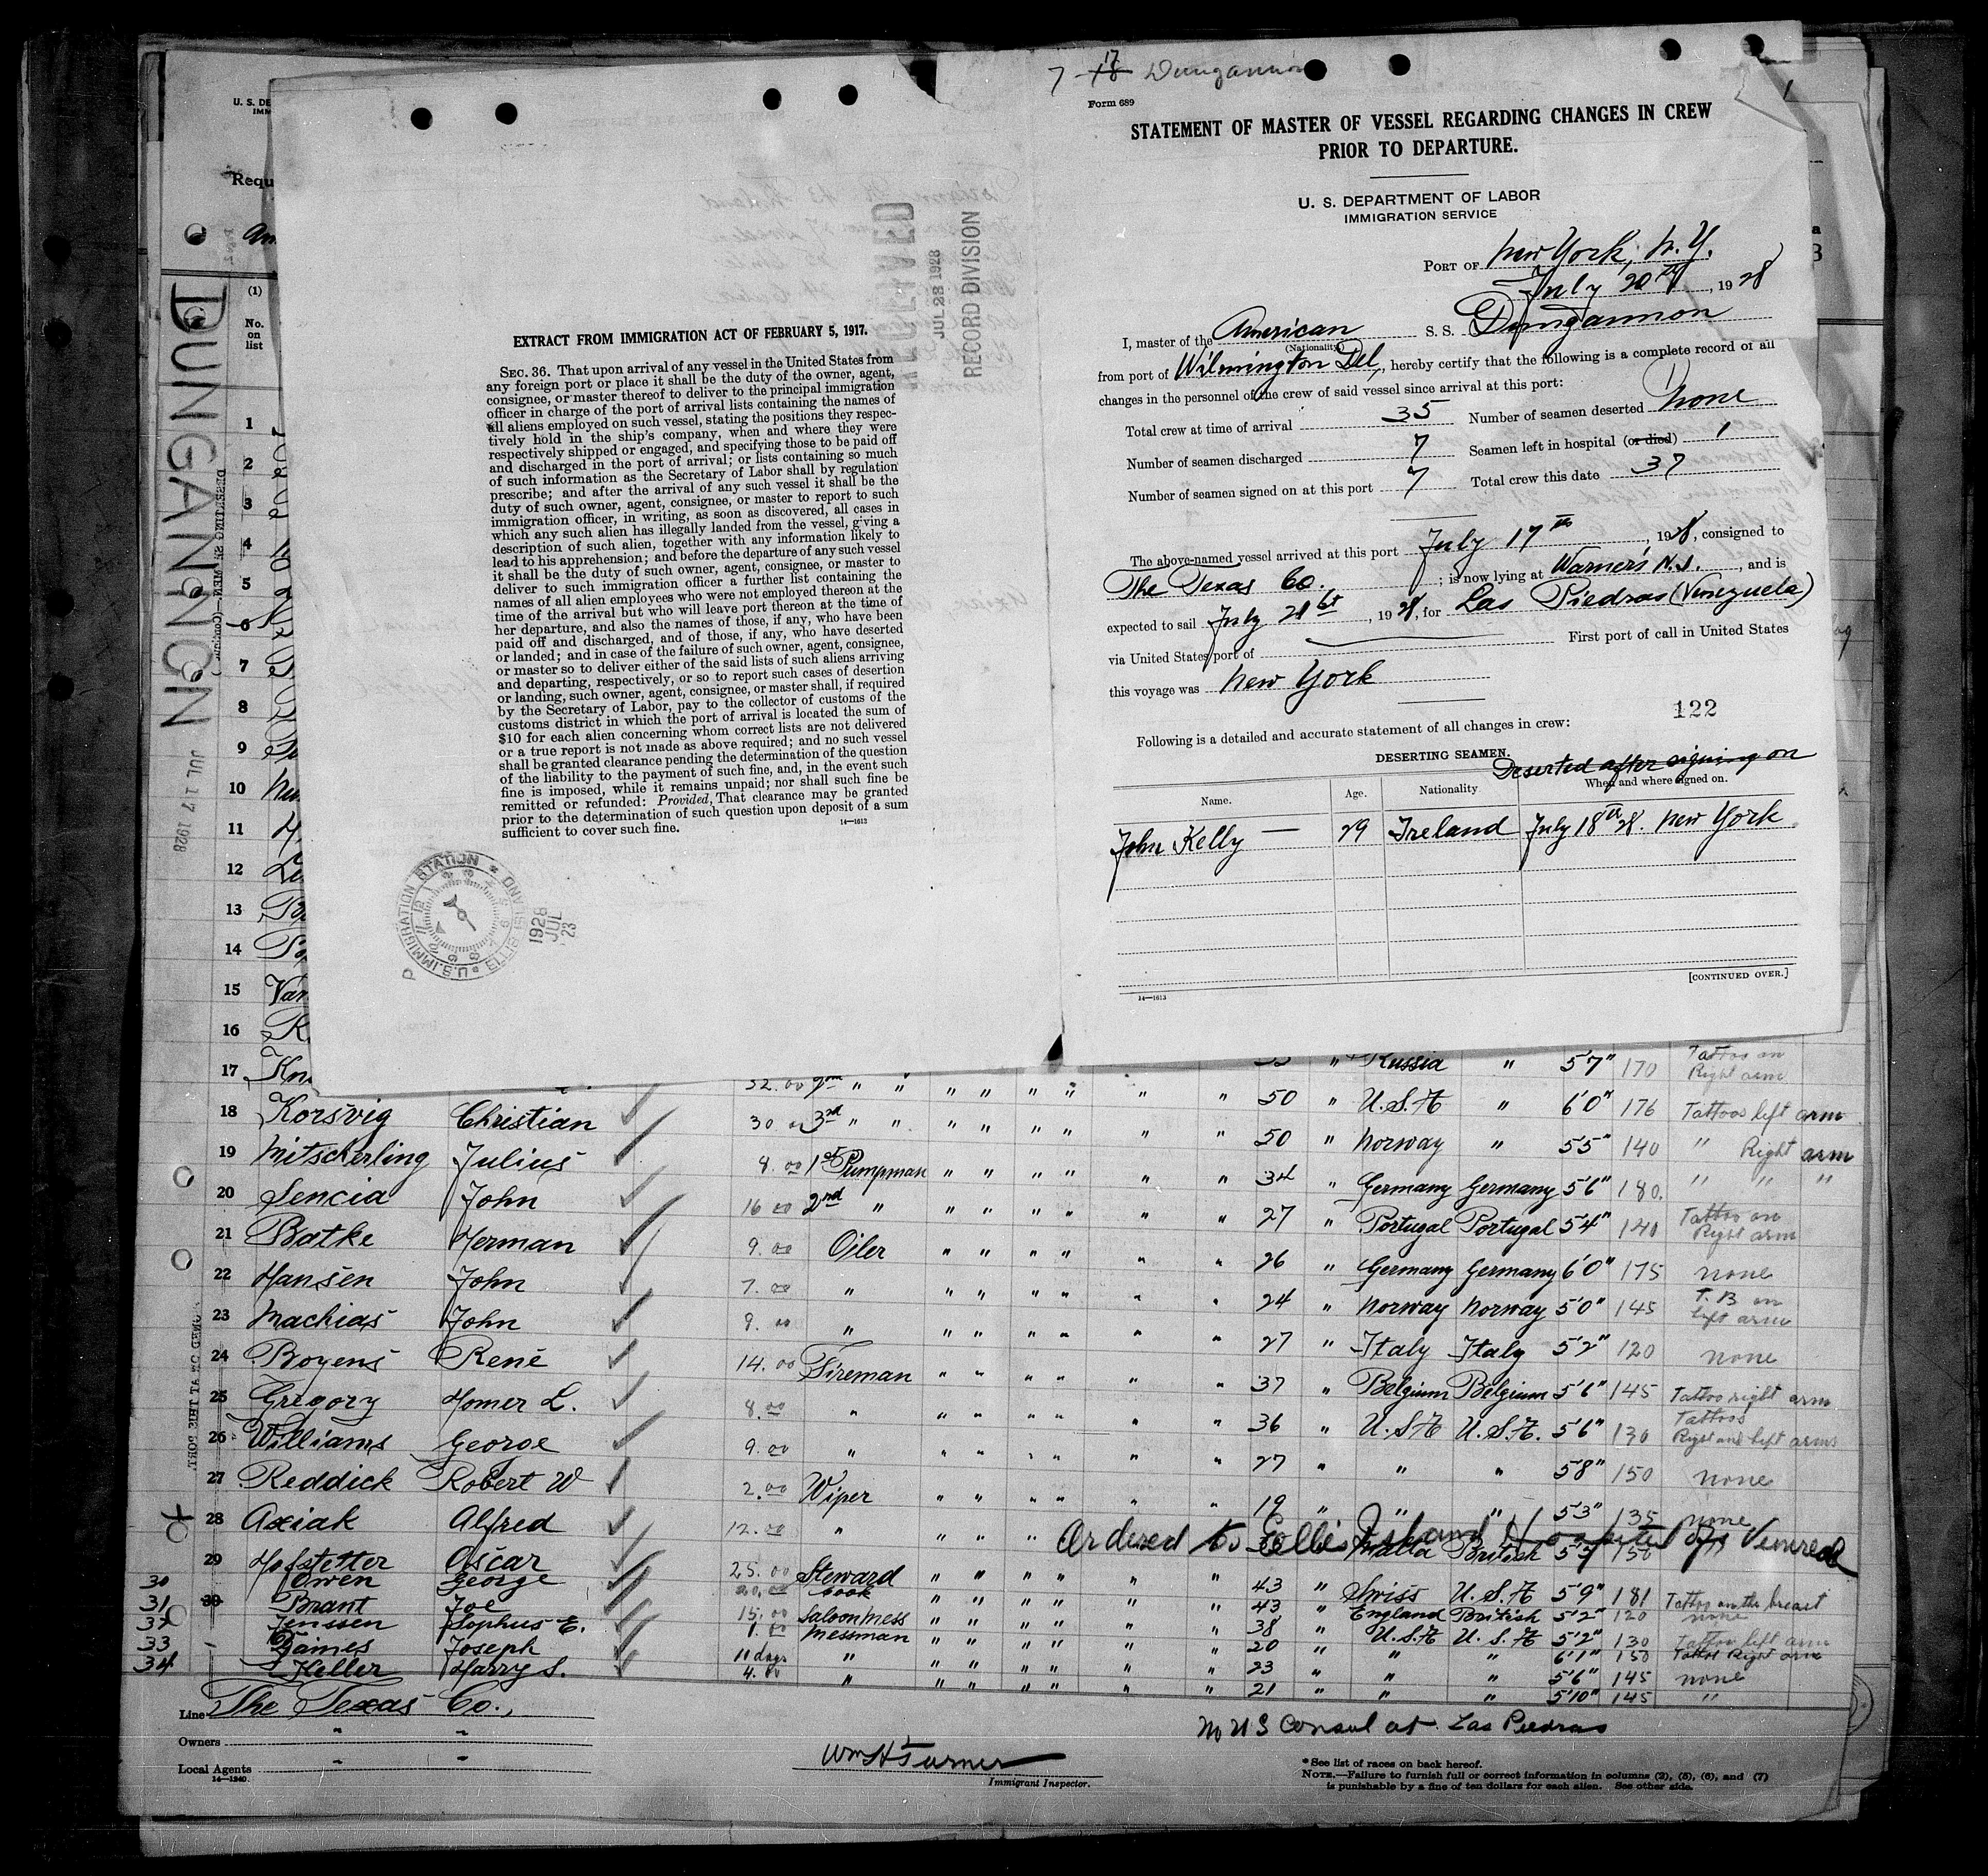 7 17 18 Dungannon
Form 689
STATEMENT OF MASTER OF VESSEL REGARDING CHANGES IN CREW
PRIOR TO DEPARTURE.
U. S. DEPARTMENT OF LABOR
IMMIGRATION SERVICE
PORT OF New York, N.Y.
July 20th, 1928
I, master of the American S. S. Dungannon
(Nationality)
from port of Wilmington Del, hereby certify that the following is a complete record of all
changes in the personnel of the crew of said vessel since arrival at this port:
Total crew at time of arrival 35 Number of seamen deserted None
Number of seamen discharged 7 Seamen left in hospital (or died) 1
Number of seamen signed on at this port 7 Total crew this date 37
The above-named vessel arrived at this port July 17th, 1928, consigned to
The Texas Co. ; is now lying at Warner's N.J., and is
expected to sail July 21st, 1928, for Las Piedras (Venezuela)
via United States port of First port of call in United States
this voyage was New York
122
Following is a detailed and accurate statement of all changes in crew:
DESERTING SEAMEN.
Deserted after signing on
Name. Age. Nationality When and where signed on.
John Kelly — 29 Ireland July 18th 28. New York
[CONTINUED OVER.]
14—1613
RECEIVED
JUL 23 1928
RECORD DIVISION
EXTRACT FROM IMMIGRATION ACT OF FEBRUARY 5, 1917.
SEC. 36. That upon arrival of any vessel in the United States from
any foreign port or place it shall be the duty of the owner, agent,
consignee, or master thereof to deliver to the principal immigration
officer in charge of the port of arrival lists containing the names of
all aliens employed on such vessel, stating the positions they respec-
tively hold in the ship's company, when and where they were
respectively shipped or engaged, and specifying those to be paid off
and discharged in the port of arrival; or lists containing so much
of such information as the Secretary of Labor shall by regulation
prescribe; and after the arrival of any such vessel it shall be the
duty of such owner, agent, consignee, or master to report to such
immigration officer, in writing, as soon as discovered, all cases in
which any such alien has illegally landed from the vessel, giving a
description of such alien, together with any information likely to
lead to his apprehension; and before the departure of any such vessel
it shall be the duty of such owner, agent, consignee, or master to
deliver to such immigration officer a further list containing the
names of all alien employees who were not employed thereon at the
time of the arrival but who will leave port thereon at the time of
her departure, and also the names of those, if any, who have been
paid off and discharged, and of those, if any, who have deserted
or landed; and in case of the failure of such owner, agent, consignee,
or master so to deliver either of the said lists of such aliens arriving
and departing, respectively, or so to report such cases of desertion
or landing, such owner, agent, consignee, or master shall, if required
by the Secretary of Labor, pay to the collector of customs of the
customs district in which the port of arrival is located the sum of
$10 for each alien concerning whom correct lists are not delivered
or a true report is not made as above required; and no such vessel
shall be granted clearance pending the determination of the question
of the liability to the payment of such fine, and, in the event such
fine is imposed, while it remains unpaid; nor shall such fine be
remitted or refunded: Provided, That clearance may be granted
prior to the determination of such question upon deposit of a sum
sufficient to cover such fine.
14—1613
U.S. IMMIGRATION STATION ELLIS ISLAND
1928 JUL 23
U. S. DE
IMM
Requ
(1)
No. on list
DUNGANNON
JUL 17 1928
1
2
3
4
5
6
7
8
9
10
11
12
13
14
15
16
17 32.00 " " " " " " " " " Russia " 5'7" 170 Tattoo on Right arm
18 Korsvig Christian 30.00 3rd " " " " " " " " 50 " U.S.A " 6'0" 176 Tattoos left arm
19 Mitscherling Julius 8.00 1st Pumpman " " " " " " 50 " Norway " 5'5" 140 " Right arm
20 Sencia John 16.00 2nd " " " " " " " 34 " Germany Germany 5'6" 180. " " "
21 Batke Herman 9.00 Oiler " " " " " " 27 " Portugal Portugal 5'4" 140 Tattoo on Right arm
22 Hansen John 7.00 " " " " " " " 26 " Germany Germany 6'0" 175 none
23 Machias John 9.00 " " " " " " " 24 " Norway Norway 5'0" 145 T.B on left arm
24 Boyens René 14.00 Fireman " " " " " " 27 " Italy Italy 5'2" 120 none
25 Gregory Homer L. 8.00 " " " " " " " 37 " Belgium Belgium 5'6" 145 Tattoo right arm
26 Williams George 9.00 " " " " " " " 36 " U.S.A U.S.A. 5'6" 130 Tattoos Right and left arms
27 Reddick Robert W 2.00 Wiper " " " " " " 27 " " " 5'8" 150 none
28 Axiak Alfred 12.00 " " " " 19 " " " 5'3" 135 none
Ordered to Ellis Island Hospital for Venereal
29 Hofstetter Oscar 25.00 Steward " " " " " " Malta British 5'5" 150
30 Owen George 20.00 Cook " " " " " " 43 " Swiss U.S.A 5'9" 181 Tattoo on the breast
31 30 Brant Joe 15.00 Saloon Mess " " " " " " 43 " England British 5'2" 120 none
32 Jenssen Sophus E. 1.00 Messman " " " " " " 38 " U.S.A U.S.A 5'2" 130 Tattoo left arm
33 James Joseph 11 days " " " " " " " 20 " " " 6'1" 150 Tattoo Right arm
34 Heller Harry S. 4.00 " " " " " " " 23 " " " 5'6" 145 none
21 " " " 5'10" 145 "
Line The Texas Co.,
Owners " "
Local Agents " "
14—1240.
Wm H Turner
Immigrant Inspector.
No U S Consul at Las Piedras
*See list of races on back hereof.
NOTE.—Failure to furnish full or correct information in columns (2), (5), (6), and (7)
is punishable by a fine of ten dollars for each alien. See other side.